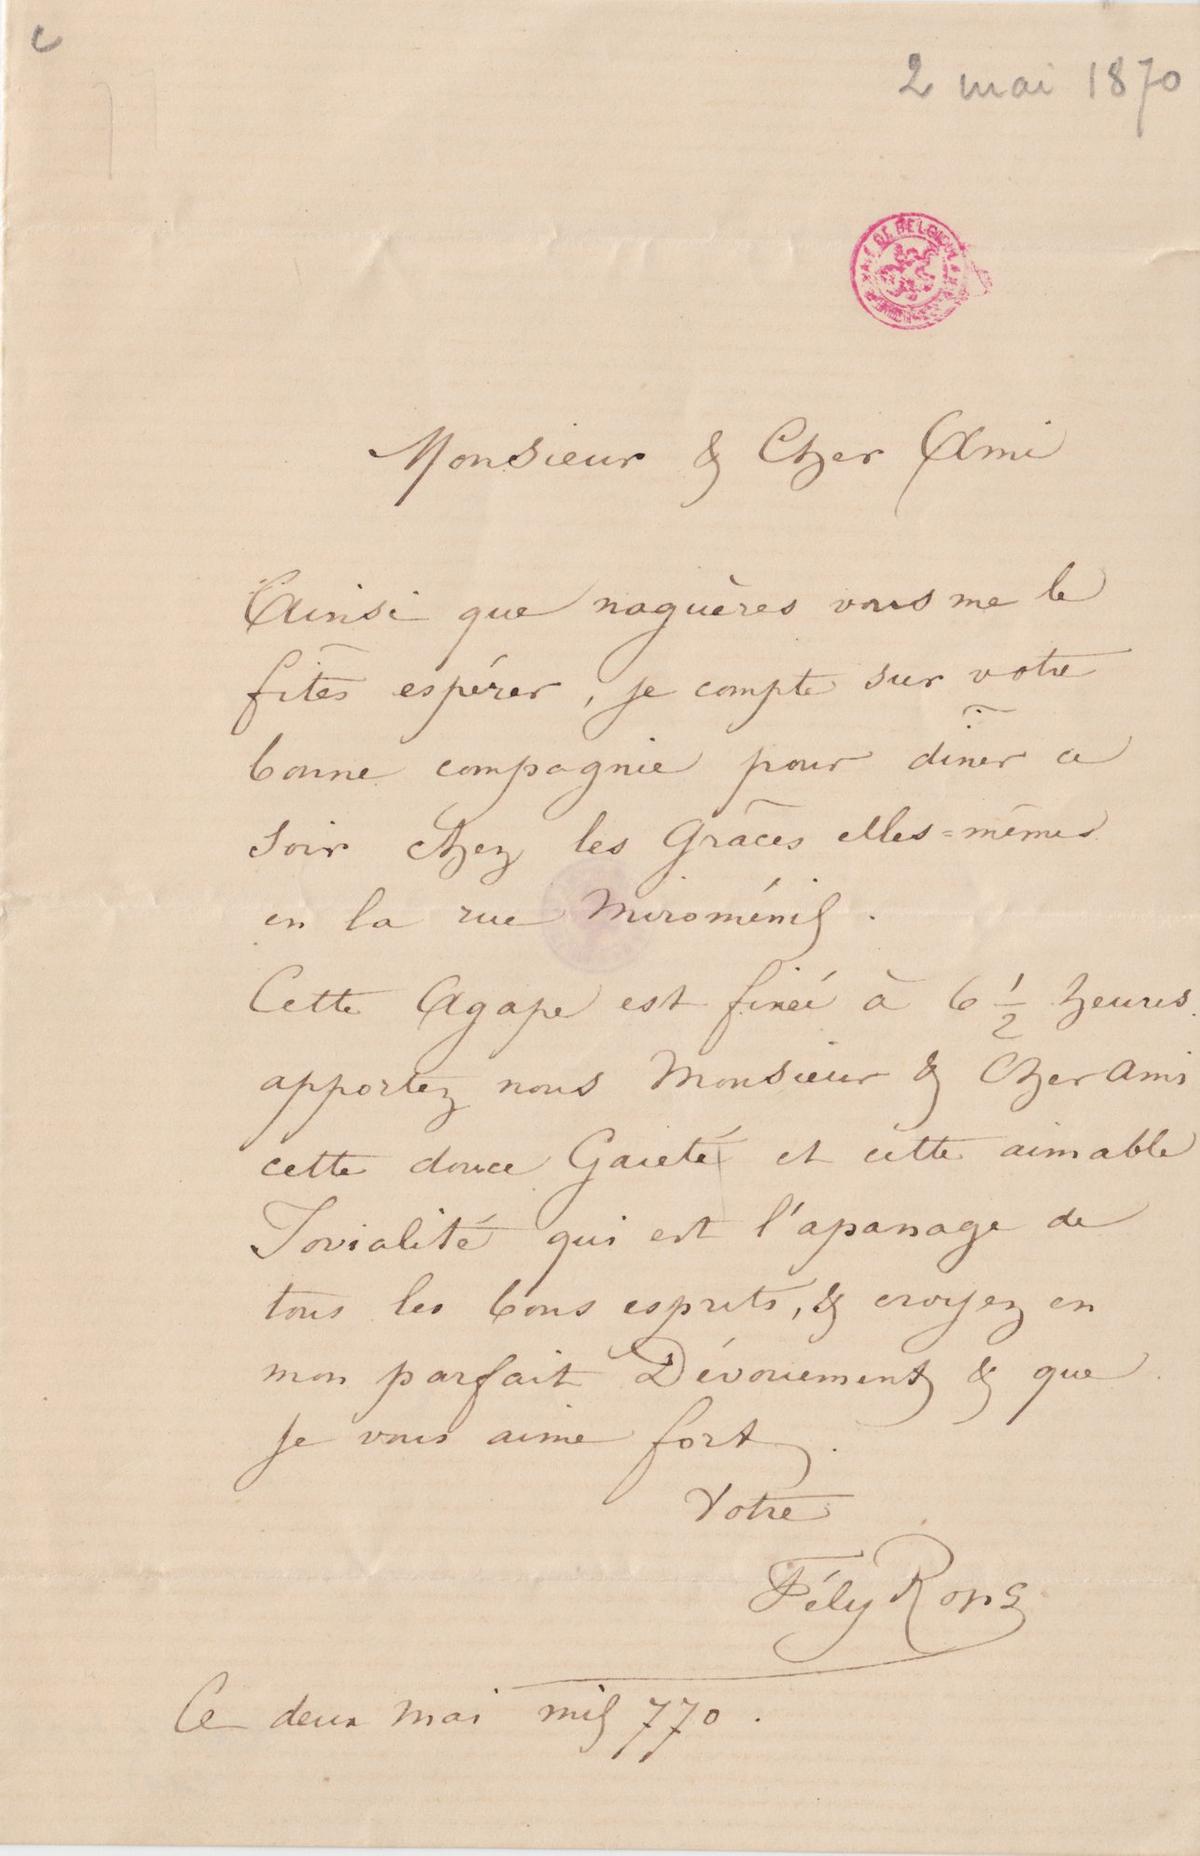 2 mai 1870
Monsieur & Cher Ami
Ainsi que naguères vous me le
fîtes espérer, je compte sur votre
bonne compagnie pour dîner ce
soir chez les Grâces elles=mêmes
en la rue Miroménil.
Cette Agape est fixée à 6 1/2 heures.
apportez nous Monsieur & Cher Ami
cette douce Gaieté et cette aimable
Jovialité qui est l'apanage de
tous les bons esprits, & croyez en
mon parfait Dévouement & que
je vous aime fort.
Votre
Fély Rops
Ce deux mai mil 770.
DE BELGIQUE